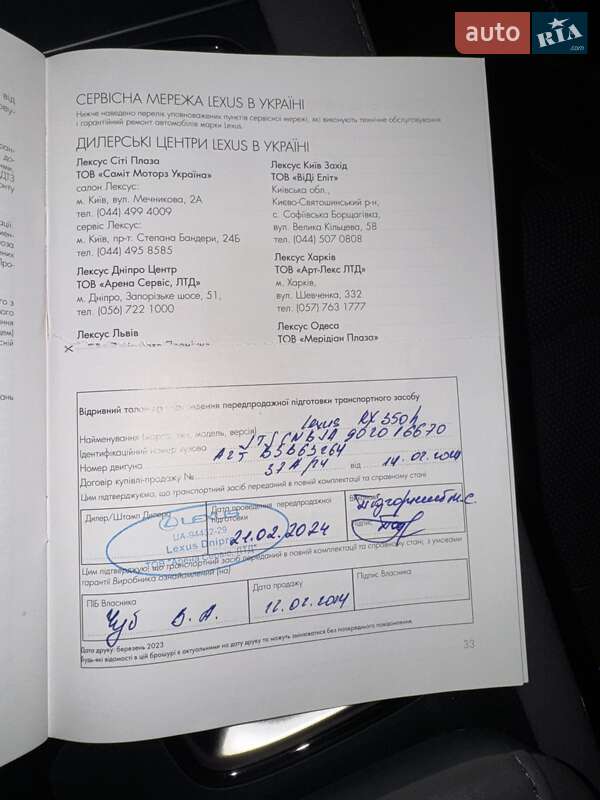 auto RIA.com
СЕРВІСНА МЕРЕЖА LEXUS В УКРАЇНІ
Нижче наведено перелік уповноважених пунктів сервісної мережі, які виконують технічне обслуговування
і гарантійний ремонт автомобілів марки Lexus.
ДИЛЕРСЬКІ ЦЕНТРИ LEXUS В УКРАЇНІ
Лексус Сіті Плаза
ТОВ «Саміт Моторз Україна»
салон Лексус:
м. Київ, вул. Мечникова, 2А
тел. (044) 499 4009
сервіс Лексус:
м. Київ, пр-т: Степана Бандери, 24Б
тел. (044) 495 8585
Лексус Дніпро Центр
ТОВ «Арена Сервіс, ЛТД»
м. Дніпро, Запорізьке шосе, 51,
тел. (056) 722 1000
Лексус Львів
Лексус Київ Захід
ТОВ «ВіДі Еліт»
Київська обл.,
Києво-Святошинський р-н,
с. Софіївська Борщагівка,
вул. Велика Кільцева, 58
тел. (044) 507 0808
Лексус Харків
ТОВ «Арт-Лекс ЛТД»
м. Харків,
вул. Шевченка, 332
тел. (057) 763 1777
Лексус Одеса
ТОВ «Мерідіан Плаза»
Відривний талон проведення передпродажної підготовки транспортного засобу
Найменування (марка, тип, модель, версія) Lexus RX 350h
Ідентифікаційний номер кузова
Номер двигуна
Договір купівлі-продажу № від 14.02.2024
Цим підтверджуємо, що транспортний засіб переданий в повній комплектації та справному стані
Дилер/Штамп Дилера
LEXUS
UA-94432-29
Lexus Dnipro
ТОВ "Арена Сервіс, ЛТД"
Дата проведення передпродажної
підготовки
21.02.2024
Підпис
Цим підтверджую, що транспортний засіб переданий в повній комплектації та справному стані, з умовами
гарантії Виробника ознайомлений (на)
ПІБ Власника
Чуб В. А.
Дата продажу
Підпис Власника
Дата друку: березень 2023
Будь-які відомості в цій брошурі є актуальними на дату друку та можуть змінюватися без попереднього повідомлення.
33